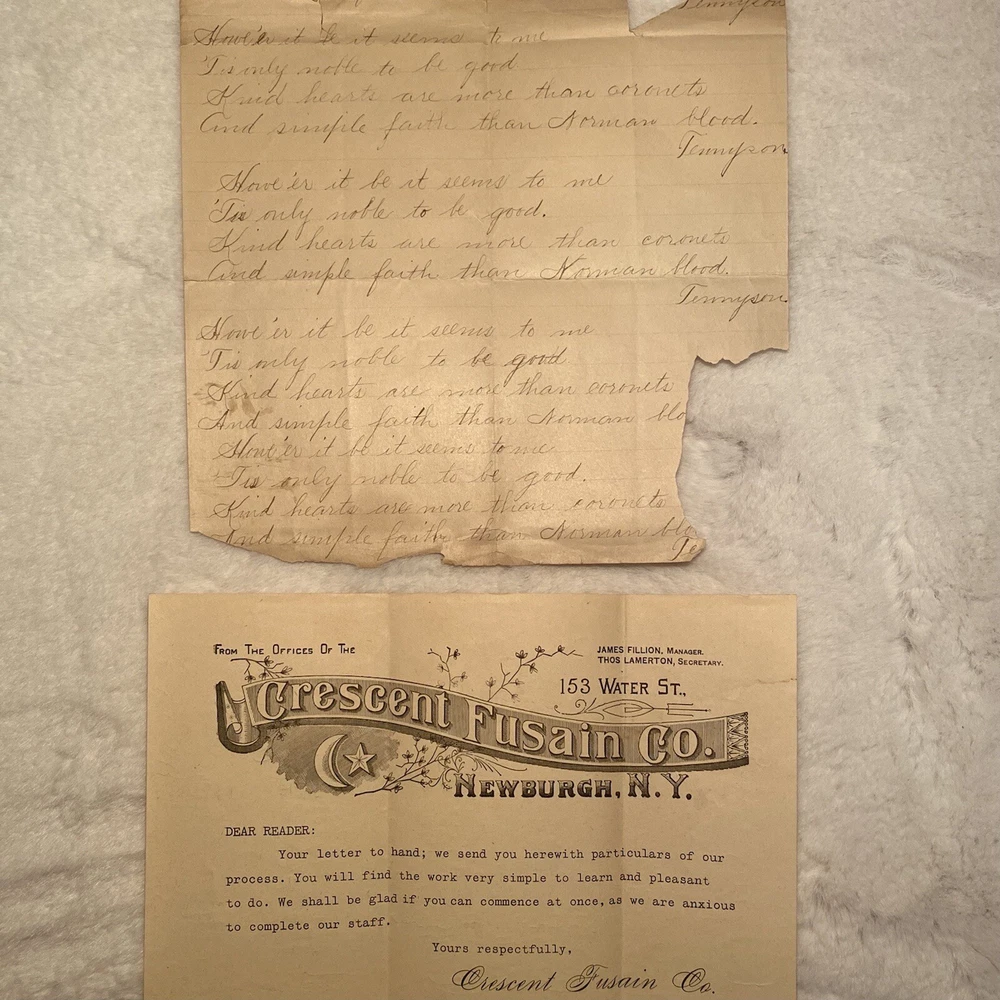 Tennyson
Howe'er it be it seems to me
'Tis only noble to be good
Kind hearts are more than coronets
And simple faith than Norman blood.
Tennyson
Howe'er it be it seems to me
'Tis only noble to be good.
Kind hearts are more than coronets
And simple faith than Norman blood.
Tennyson
Howe'er it be it seems to me
'Tis only noble to be good
Kind hearts are more than coronets
And simple faith than Norman blo
Howe'er it be it seems to me
'Tis only noble to be good.
Kind hearts are more than coronets
And simple faith than Norman blo
Te
From The Offices Of The
JAMES FILLION, MANAGER.
THOS LAMERTON, SECRETARY.
153 WATER ST.,
Crescent Fusain Co.
NEWBURGH, N.Y.
DEAR READER:
Your letter to hand; we send you herewith particulars of our
process. You will find the work very simple to learn and pleasant
to do. We shall be glad if you can commence at once, as we are anxious
to complete our staff.
Yours respectfully,
Crescent Fusain Co.